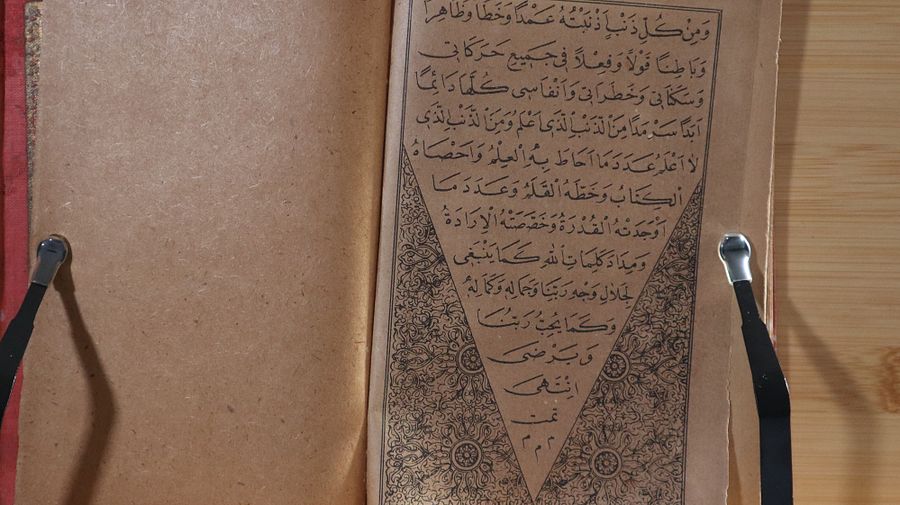 وَمِنْ كُلِّ ذَنْبٍ اَذْنَبْتُهُ عَمْدًا وَخَطَأً وَظَاهِرًا
وَبَاطِنًا قَوْلًا وَفِعْلًا فِى جَمِيعِ حَرَكَاتِى
وَسَكَنَاتِى وَخَطَرَاتِى وَاَنْفَاسِى كُلِّهَا دَائِمًا
اَبَدًا سَرْمَدًا مِنَ الذَّنْبِ الَّذِى اَعْلَمُ وَمِنَ الذَّنْبِ الَّذِى
لَا اَعْلَمُ عَدَدَ مَا اَحَاطَ بِهِ الْعِلْمُ وَاَحْصَاهُ
الْكِتَابُ وَخَطَّهُ الْقَلَمُ وَعَدَدَ مَا
اَوْجَدَتْهُ الْقُدْرَةُ وَخَصَّصَتْهُ الْاِرَادَةُ
وَمِدَادَ كَلِمَاتِ اللّٰهِ كَمَا يَنْبَغِى
لِجَلَالِ وَجْهِ رَبِّنَا وَجَمَالِهِ وَكَمَالِهِ
وَكَمَا يُحِبُّ رَبُّنَا
وَيَرْضَى
اِنْتَهَى
تمت
م م م